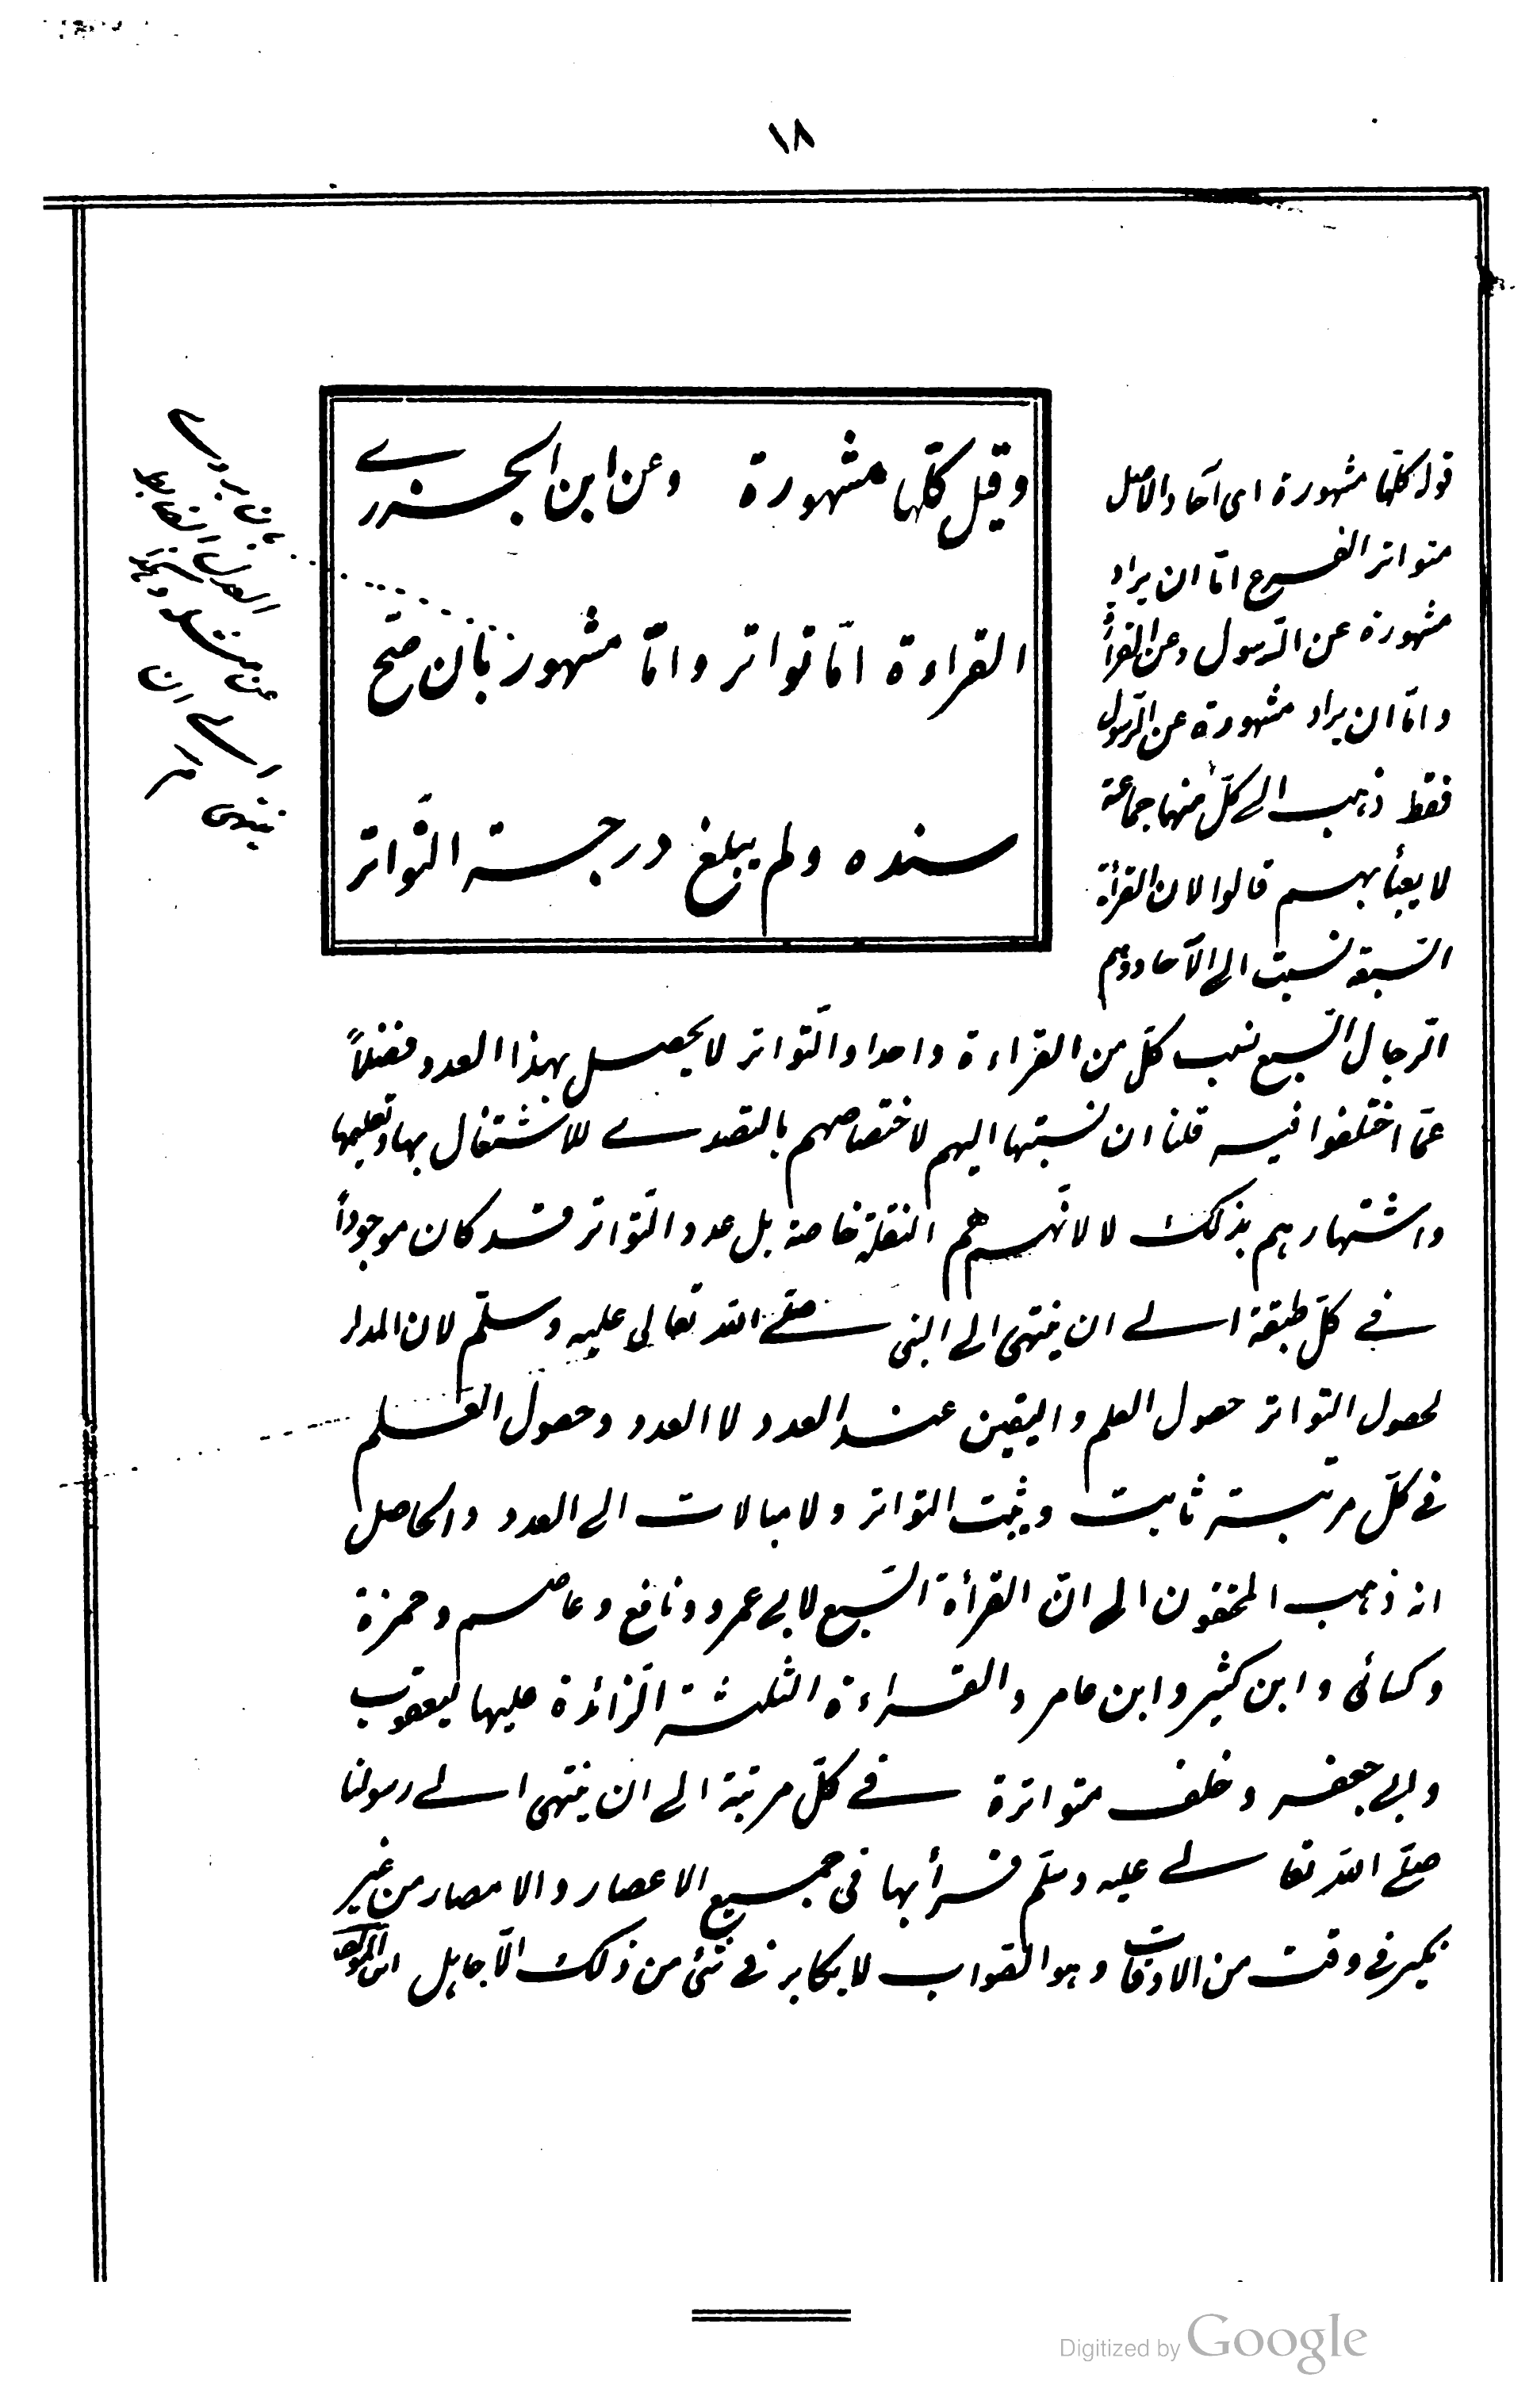 ١٨
وقيل كلّها مشهورة وعن ابن الجزري
القراءة امّا تواتر وامّا مشهور بان صحّ
سنده ولم يبلغ درجة التّواتر
قوله كلّها مشهورة اى آحاد الاصل
متواتر الفرع امّا ان يراد
مشهورة عن الرّسول وعن القرأ
وامّا ان يراد مشهورة عن الرّسول
فقط ذهب الى كلّ منها جماعة
لا يعبأ بهم قالوا لان القرأة
السّبعة نسبت الى الآحاد وهم
الرّجال السّبع نسب كلّ من القراءة واحدا والتّواتر لا يحصل بهذا العدد فضلاً
عمّا اختلفوا فيه قلنا ان نسبتها اليهم لاختصاصهم بالتصدى للاشتغال بها وتعليمها
واشتهارهم بذلك لا لانّهم هم النقلة خاصة بل عدد التّواتر قد كان موجوداً
فى كلّ طبقة الى ان ينتهى الى النبى صلّى الله تعالى عليه وسلّم لان المدار
لحصول التواتر حصول العلم واليقين عند العدد لا العدد وحصول العلم
فى كلّ مرتبة ثابت ويثبت التواتر ولا مبالات الى العدد والحاصل
انه ذهب المحققون الى انّ القرأة السّبع لابى عمرو ونافع وعاصم وحمزة
وكسائى وابن كثير وابن عامر والقراءة الثلثة الزّائدة عليها ليعقوب
وابى جعفر وخلف متواترة فى كلّ مرتبة الى ان ينتهى الى رسولنا
صلّى الله تعالى عليه وسلّم قرأ بها فى جميع الاعصار والامصار من غير
نكير فى وقت من الاوقات وهو الصّواب لا يكابر فى شئ من ذلك الّا جاهل
بان يروى
العدل الضابط
عن مثله
الى ان
ينتهى